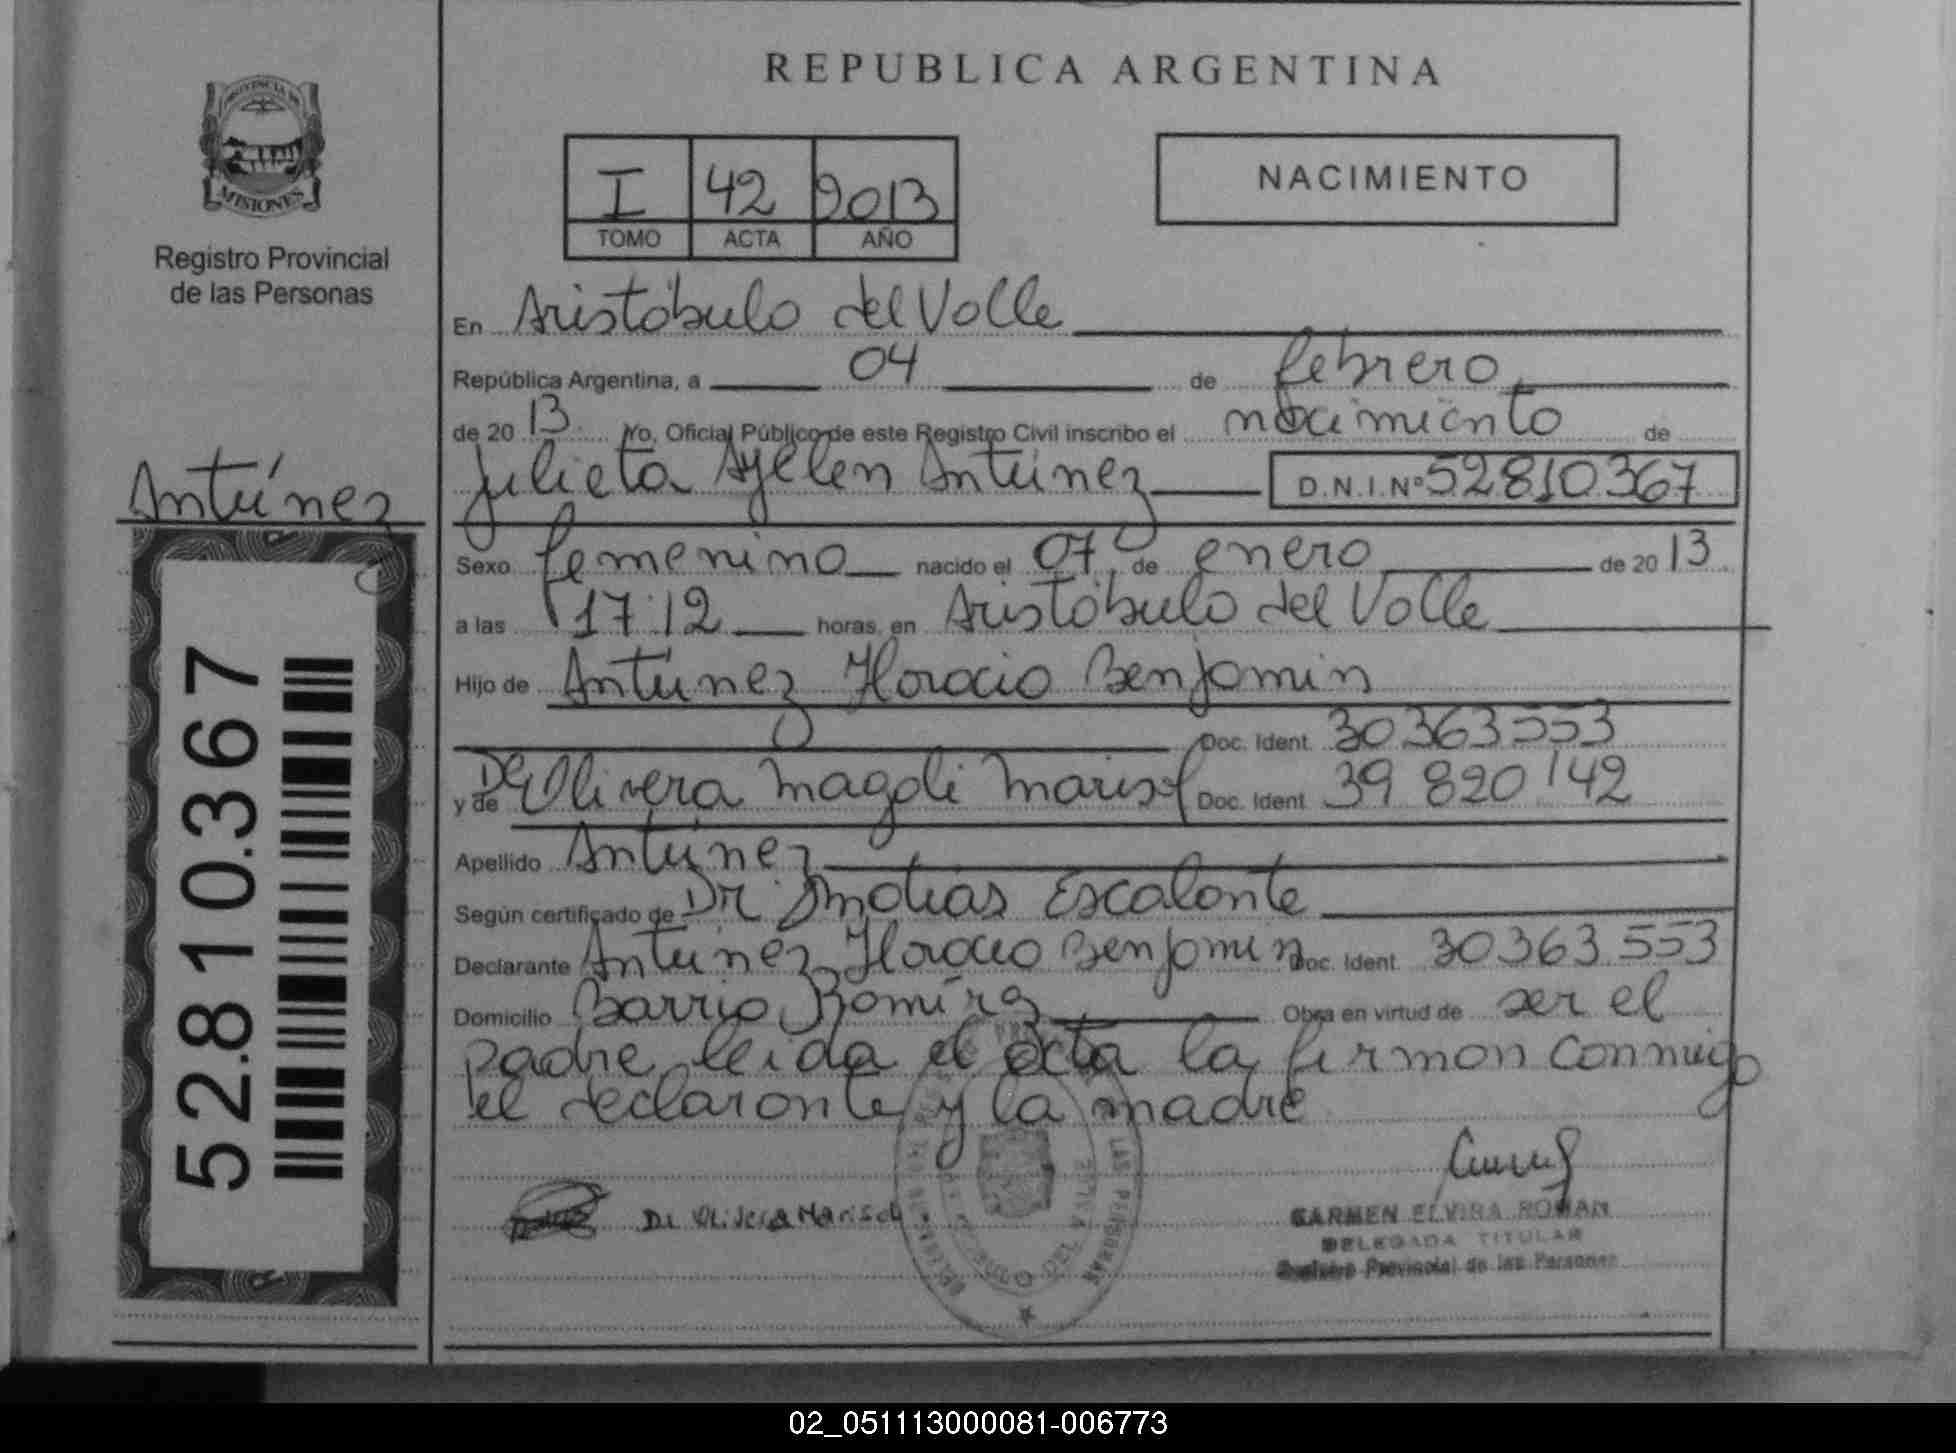 REPUBLICA ARGENTINA
PROVINCIA DE
MISIONES
Registro Provincial
de las Personas
I 42 2013
TOMO ACTA AÑO
NACIMIENTO
En Aristóbulo del Valle
República Argentina, a 04 de febrero
de 20 13 Yo, Oficial Público de este Registro Civil inscribo el nacimiento de
Antúnez
Julieta Ayelen Antúnez D.N.I.Nº 52810367
Sexo femenino nacido el 07 de enero de 20 13
a las 17:12 horas, en Aristóbulo del Valle
Hijo de Antúnez Horacio Benjamin
Doc. Ident. 30363553
y de De Olivera Magali Marisol Doc. Ident. 39 820 142
Apellido Antúnez
Según certificado de Dr. Matias Escalante
Declarante Antúnez Horacio Benjamin Doc. Ident. 30363553
Domicilio Barrio Obra en virtud de ser el
padre leida el acta la firman conmigo
el declarante y la madre
52.810.367
De Olivera Marisol
CARMEN ELVIRA ROMAN
DELEGADA TITULAR
Registro Provincial de las Personas
02_051113000081-006773